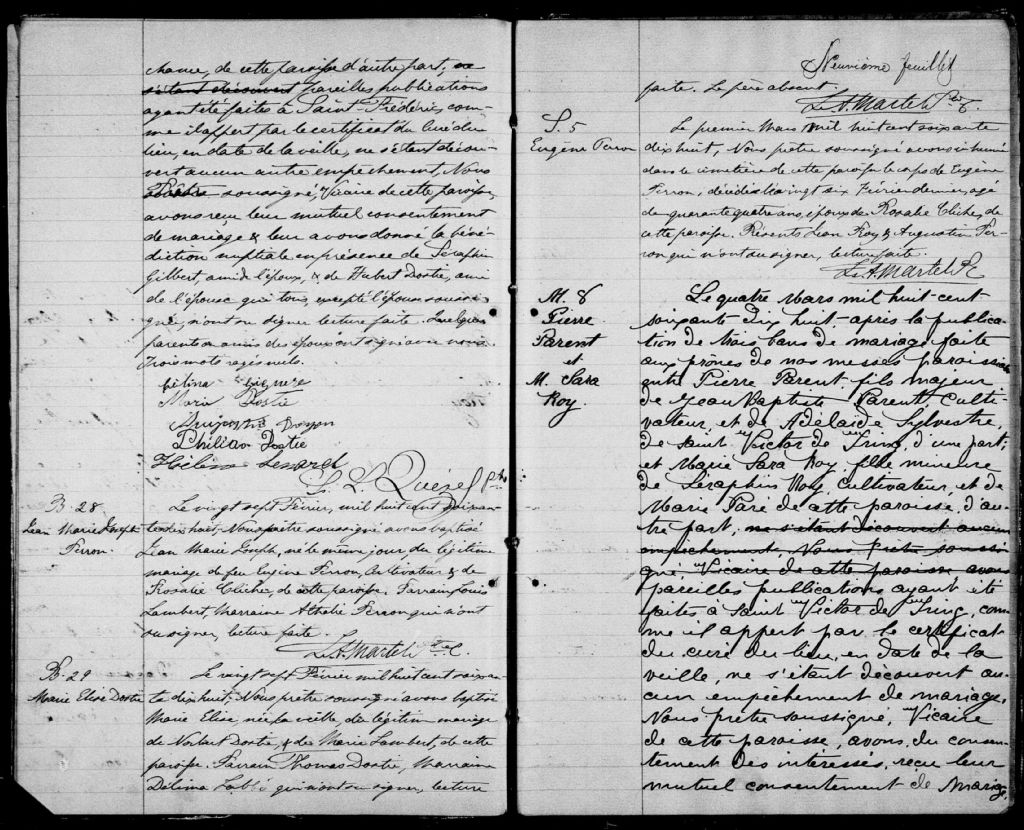 chance, de cette paroisse d'autre part, ne
s'étant découvert pareilles publications
ayant été faites à Saint-Frédéric, com-
me il appert par le certificat du Curé du
lieu, en date de la veille, ne s'étant décou-
vert aucun autre empêchement, Nous
Prêtre soussigné, Vicaire de cette paroisse,
avons reçu leur mutuel consentement
de mariage & leur avons donné la béné-
diction nuptiale en présence de Séraphin
Gilbert, ami de l'époux, & de Hubert Dostie, ami
de l'épouse qui tous, excepté l'épouse soussi-
gnée, n'ont su signer lecture faite. Quelques
parents & amis des époux ont signé avec nous.
Trois mots rayés nuls.
Célina
Marie Dostie
Philéas Dostie
Hélène
B. 28
Jean Marie Joseph
Ferron.
Le vingt sept Février, mil huit cent soixan-
te dix huit, Nous prêtre soussigné avons baptisé
Jean Marie Joseph, né le même jour du légitime
mariage de feu Eugène Ferron, Cultivateur & de
Rosalie Cliche, de cette paroisse. Parrain Louis
Lambert, Marraine Athalie Ferron qui n'ont
su signer, lecture faite.
L. A. Martel Ptre C.
B. 29
Marie Elise Dostie
Le vingt sept Février mil huit cent soixan-
te dix huit, Nous prêtre soussigné avons baptisé
Marie Elise, née la veille, du légitime mariage
de Norbert Dostie, & de Marie Lambert, de cette
paroisse. Parrain Thomas Dostie, Marraine
Délima Labbé qui n'ont su signer, lecture
Neuvième feuillet
faite. Le père absent.
L. A. Martel Ptre C
S. 5
Eugène Ferron
Le premier Mars mil huit cent soixante
dix huit, Nous prêtre soussigné avons inhumé
dans le cimetière de cette paroisse le corps de Eugène
Ferron, décédé le vingt six Février dernier, agé
de quarante quatre ans, époux de Rosalie Cliche, de
cette paroisse. Présents Jean Roy & Augustin Fer-
ron qui n'ont su signer, lecture faite.
L. A. Martel P. C
M. 8
Pierre
Parent
et
M. Sara
Roy.
Le quatre Mars mil huit-cent-
soixante Dix huit, après la publica-
tion de trois bans de mariage faite
aux prônes de nos messes paroissiales
entre Pierre Parent fils majeur
de Jean Baptiste Parent Culti-
vateur, et de Adélaïde Sylvestre,
de Saint Victor de Tring, d'une part;
et Marie Sara Roy fille mineure
de Séraphin Roy cultivateur, et de
Marie Paré de cette paroisse, d'au-
tre part, ne s'étant découvert aucun
empêchement, Nous Prêtre soussi-
gné, Vicaire de cette paroisse avons
pareilles publications ayant été
faites à Saint Victor de Tring, com-
me il appert par le certificat
du curé du lieu, en date de la
veille, ne s'étant découvert au-
cun empêchement de mariage,
Nous Prêtre soussigné, Vicaire
de cette paroisse, avons, du consen-
tement des intéressés, reçu leur
mutuel consentement de mariage